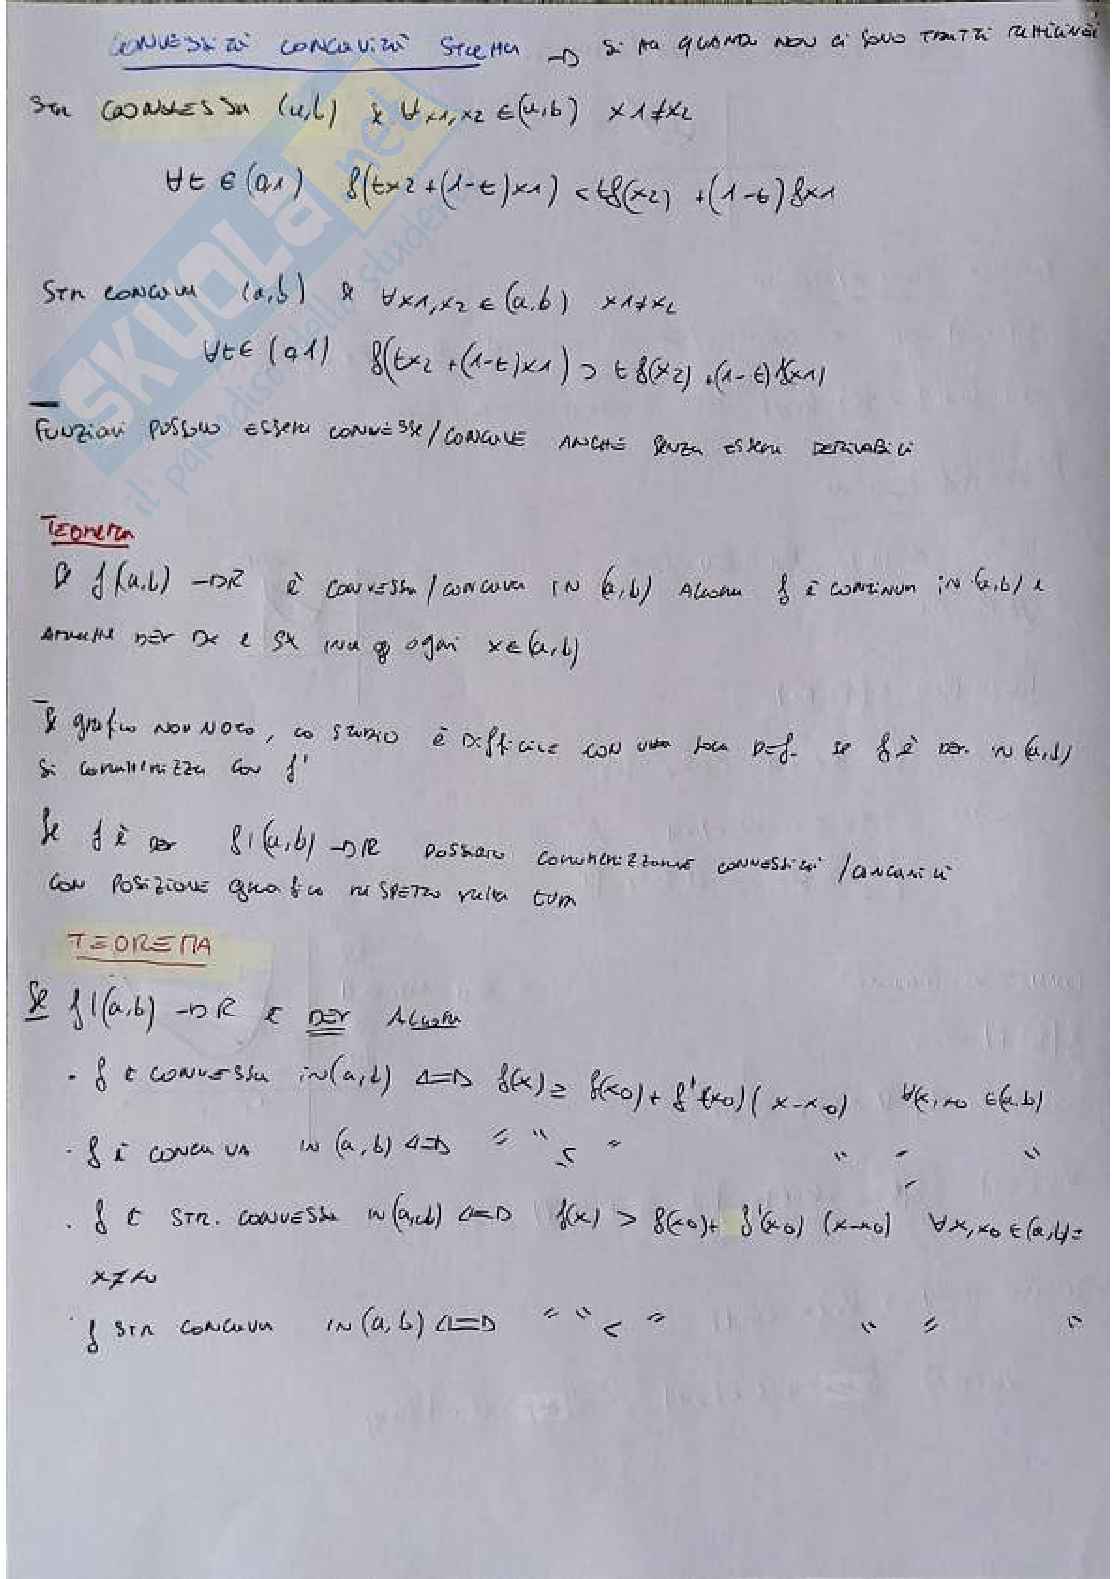 CONVESSITÀ CONCAVITÀ STRETTA → SI HA QUANDO NON CI SONO TRATTI RETTILINEI
STR CONVESSA (a,b) se ∀x1,x2 ∈ (a,b) x1≠x2
∀t ∈ (0,1) f(tx2 + (1-t)x1) < tf(x2) + (1-t) fx1
STR CONCAVA (a,b) se ∀x1,x2 ∈ (a,b) x1≠x2
∀t ∈ (0,1) f(tx2 + (1-t)x1) > t f(x2) + (1-t) f(x1)
FUNZIONI POSSONO ESSERE CONVESSE/CONCAVE ANCHE SENZA ESSERE DERIVABILI
TEOREMA
f(a,b) → R È CONVESSA/CONCAVA IN (a,b) ALLORA f È CONTINUA IN (a,b) e
AMMETTE DER DX e SX in ogni x∈(a,b)
Se grafico NON NOTO, LO STUDIO È DIFFICILE CON DEF. se f è DER. IN (a,b)
Si CARATTERIZZA CON f'
Se f è DER f|(a,b) → R POSSIAMO CARATTERIZZARE CONVESSITÀ/CONCAVITÀ
CON POSIZIONE grafico RISPETTO retta
TEOREMA
Se f|(a,b) → R È DER ALLORA
• f È CONVESSA in (a,b) ⇔ f(x) ≥ f(x0) + f'(x0) (x-x0) ∀x,x0 ∈(a,b)
• f È CONCAVA IN (a,b) ⇔ " " ≤ " " " "
• f È STR. CONVESSA IN (a,b) ⇔ f(x) > f(x0)+ f'(x0) (x-x0) ∀x,x0 ∈ (a,b)=
x≠x0
• f STR CONCAVA IN (a,b) ⇔ " " < " " " "
SKUOLA.net
il paradiso dello studente